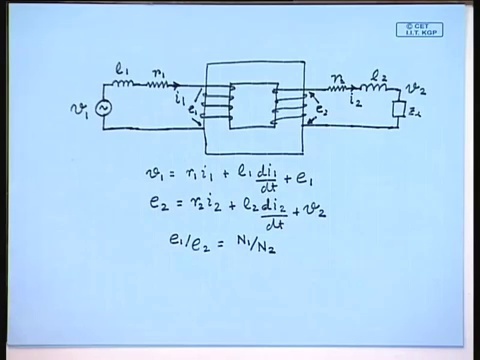 © CET
I.I.T. KGP
l₁ r₁ r₂ l₂ v₂
v₁ i₁ e₁ e₂ i₂ Z_L
v₁ = r₁i₁ + l₁ di₁/dt + e₁
e₂ = r₂i₂ + l₂ di₂/dt + v₂
e₁/e₂ = N₁/N₂